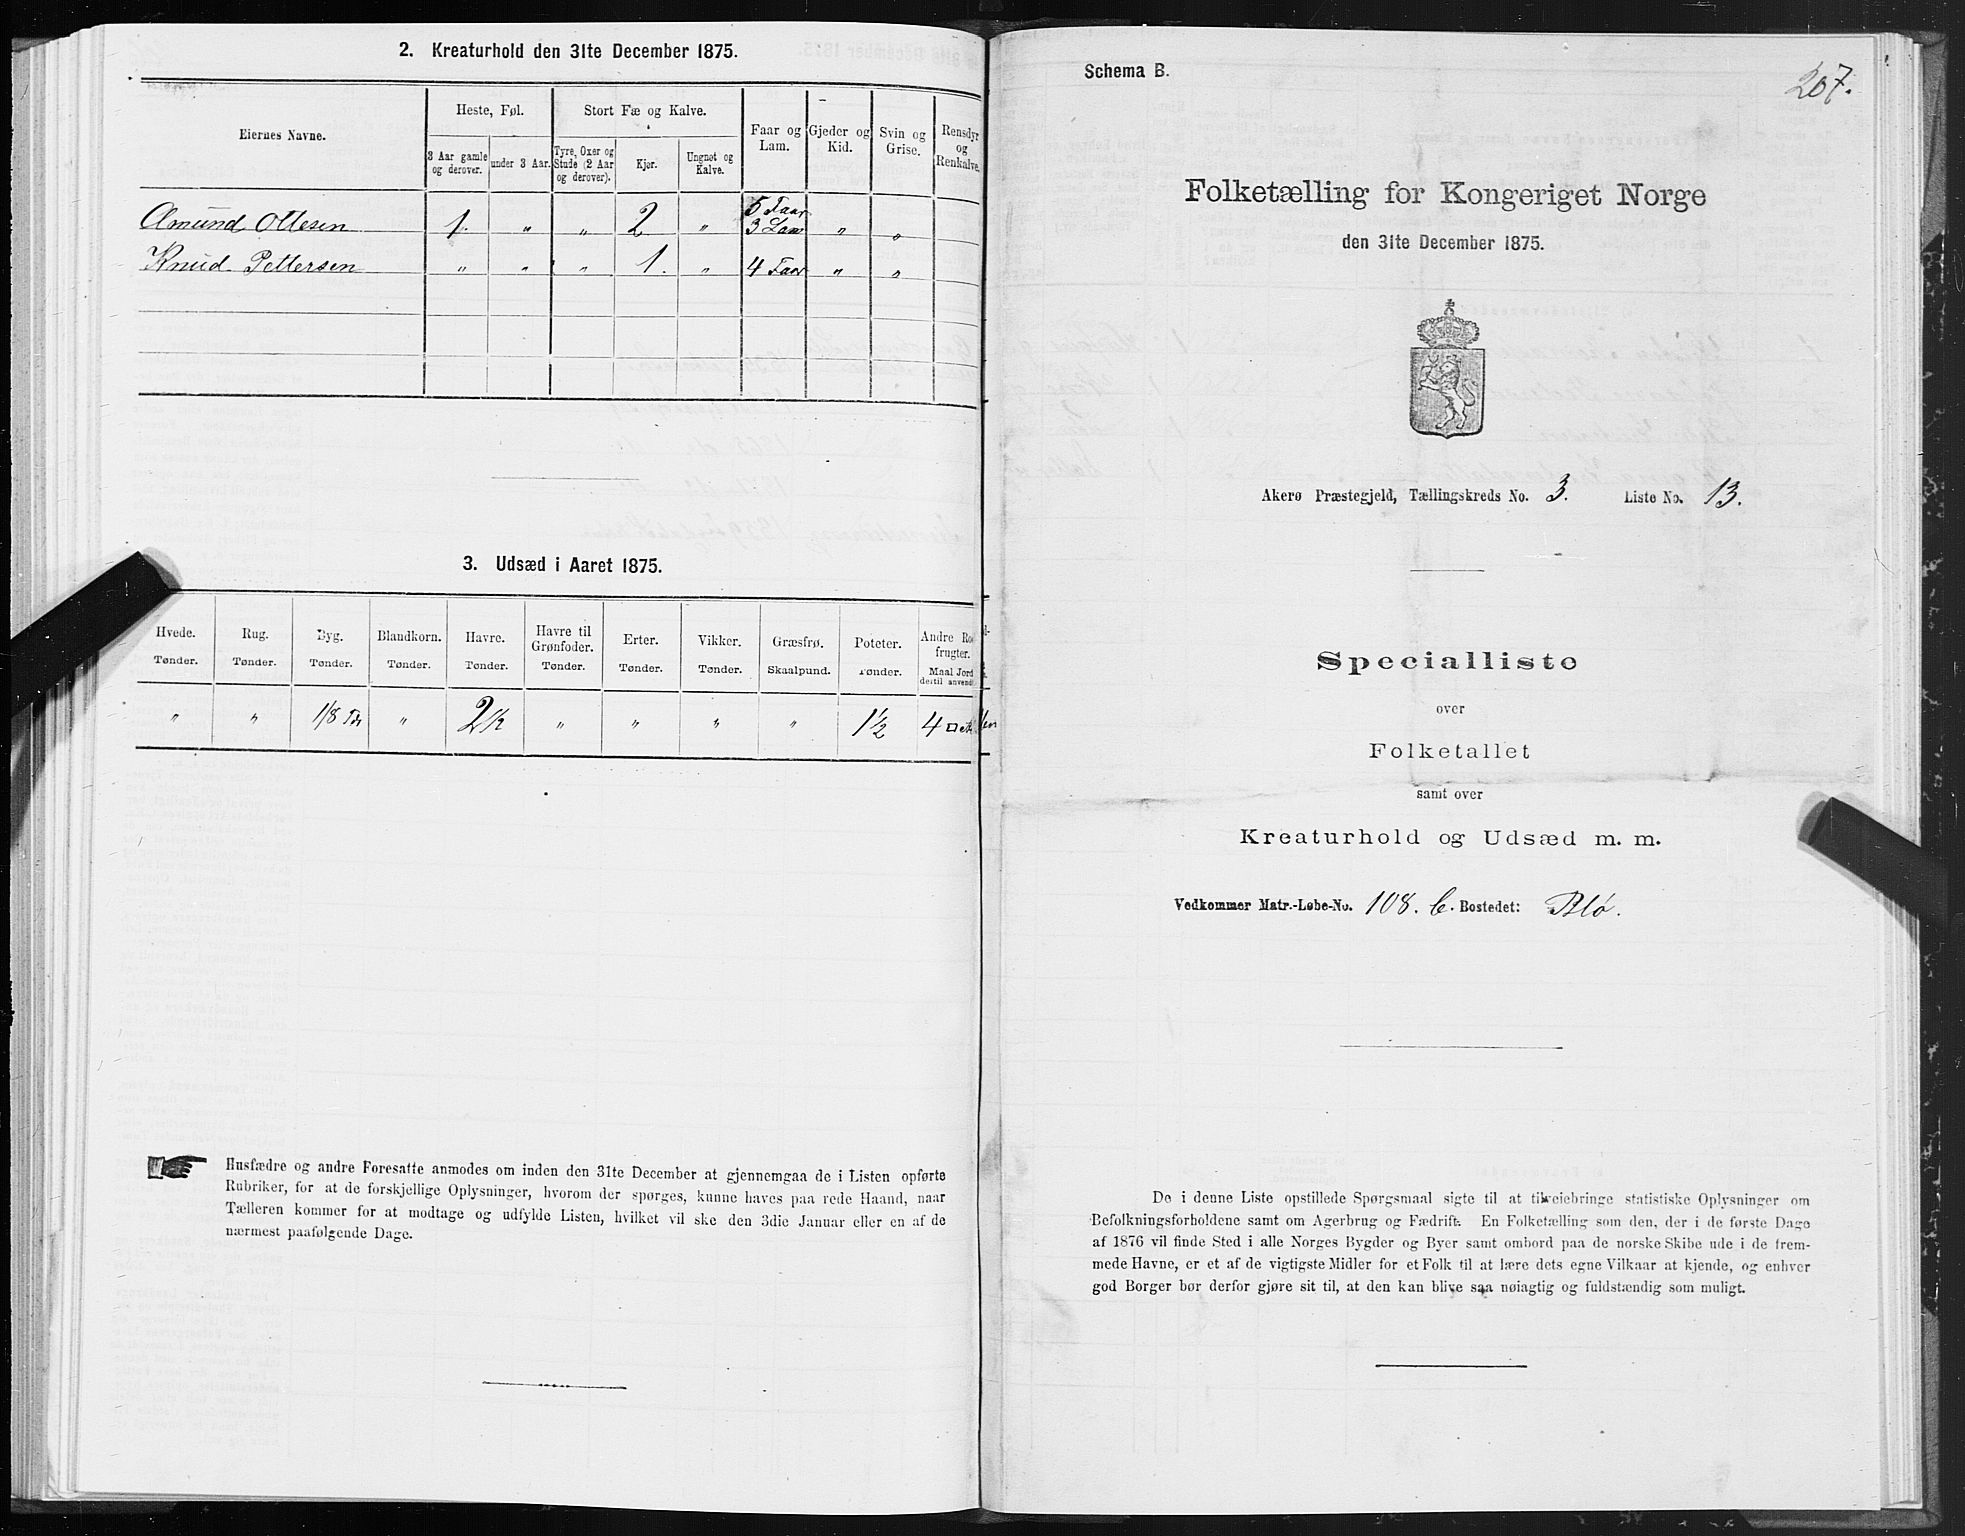 2. Kreaturhold den 31te December 1875.
Eiernes Navne.
Heste, Føl.
Stort Fæ og Kalve.
Faar og Lam.
Gjeder og Kid.
Svin og Grise.
Rensdyr og Renkalve.
3 Aar gamle og derover.
under 3 Aar.
Tyre, Oxer og Stude (2 Aar og derover).
Kjør.
Ungnøt og Kalve.
Amund Ottesen 1. " " 2 " 5 Faar 3 Lam " "
Knud Pettersen " " " 1. " 4 Faar " "
3. Udsæd i Aaret 1875.
Hvede. Rug. Byg. Blandkorn. Havre. Havre til Grønfoder. Erter. Vikker. Græsfrø. Poteter. Andre Ro frugter.
Tønder. Tønder. Tønder. Tønder. Tønder. Tønder. Tønder. Tønder. Skaalpund. Tønder. Maal Jord dertil anvend
" " 1/8 Tdr " 2½ " " " " 1½ 4
Husfædre og andre Foresatte anmodes om inden den 31te December at gjennemgaa de i Listen opførte
Rubriker, for at de forskjellige Oplysninger, hvorom der spørges, kunne haves paa rede Haand, naar
Tælleren kommer for at modtage og udfylde Listen, hvilket vil ske den 3die Januar eller en af de
nærmest paafølgende Dage.
Schema B.
207.
Folketælling for Kongeriget Norge
den 31te December 1875.
Akerø Præstegjeld, Tællingskreds No. 3. Liste No. 13.
Specialliste
over
Folketallet
samt over
Kreaturhold og Udsæd m. m.
Vedkommer Matr.-Løbe-No. 108. C. Bostedet: Blø.
De i denne Liste opstillede Spørgsmaal sigte til at tilveiebringe statistiske Oplysninger om
Befolkningsforholdene samt om Agerbrug og Fædrift. En Folketælling som den, der i de første Dage
af 1876 vil finde Sted i alle Norges Bygder og Byer samt ombord paa de norske Skibe ude i de frem-
mede Havne, er et af de vigtigste Midler for et Folk til at lære dets egne Vilkaar at kjende, og enhver
god Borger bør derfor gjøre sit til, at den kan blive saa nøiagtig og fuldstændig som muligt.